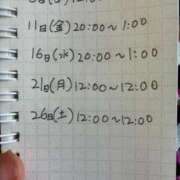 11日(金) 20:00~1:00
16日(水) 20:00~1:00
21日(月) 12:00~12:00
26日(土) 12:00~12:00